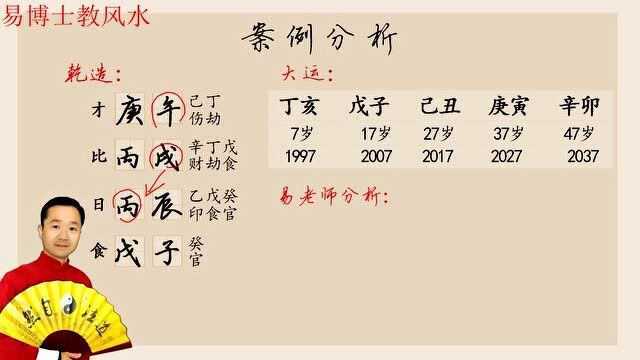 易博士教风水
案例分析
乾造：
才 庚 午 己丁
伤劫
比 丙 戌 辛丁戊
财劫食
日 丙 辰 乙戊癸
印食官
食 戊 子 癸
官
大运：
丁亥 戊子 己丑 庚寅 辛卯
7岁 17岁 27岁 37岁 47岁
1997 2007 2017 2027 2037
易老师分析：